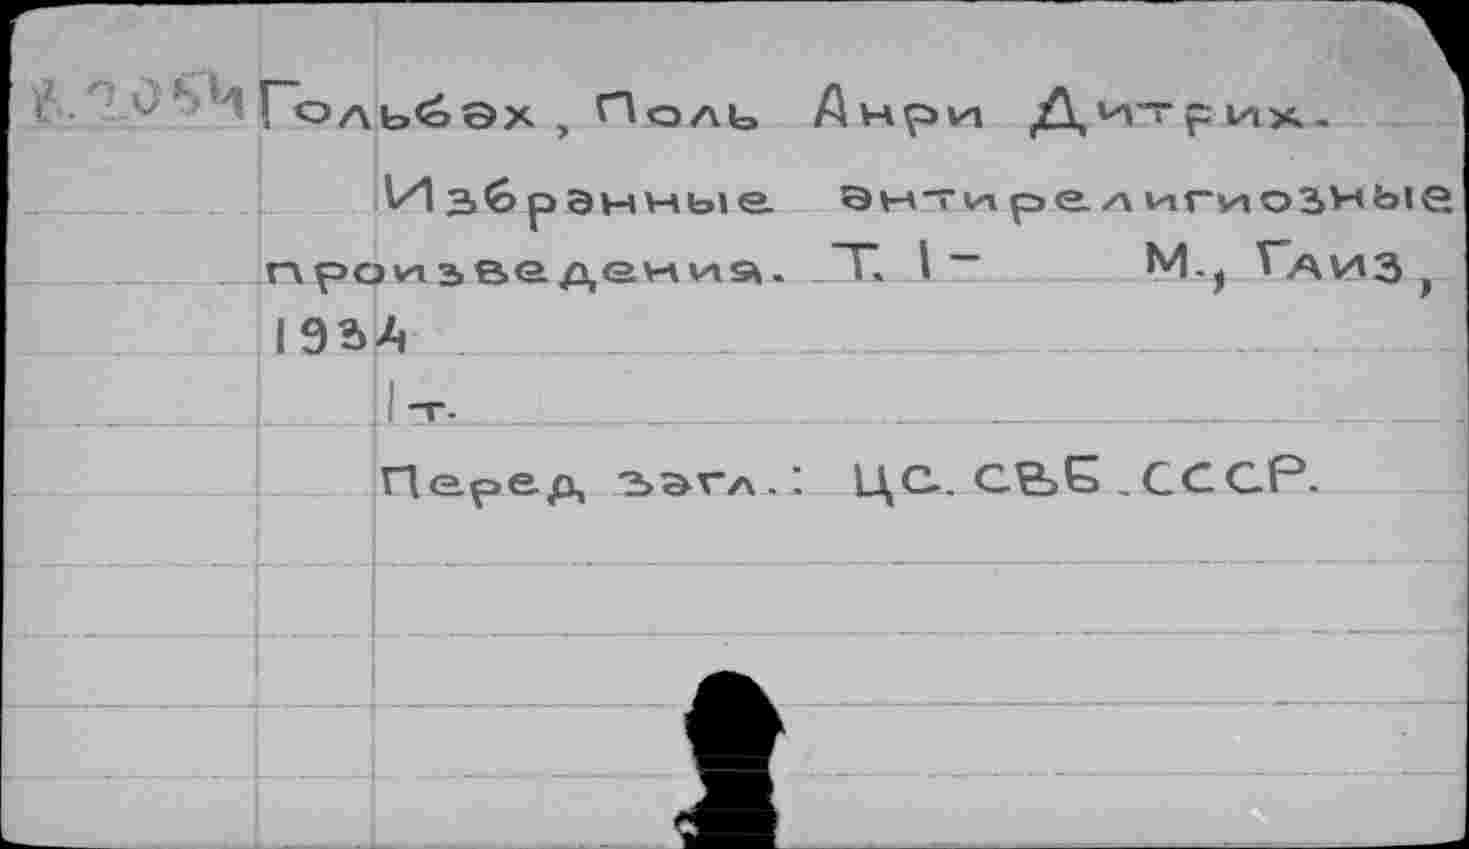 Гольбах, Поль Анри Дитрих.
Избранные антирелигиозные
произведения. Т. 1- М., Гаиз,
1934
1 т.
Перед загл.: ЦС. СВБ. СССР.